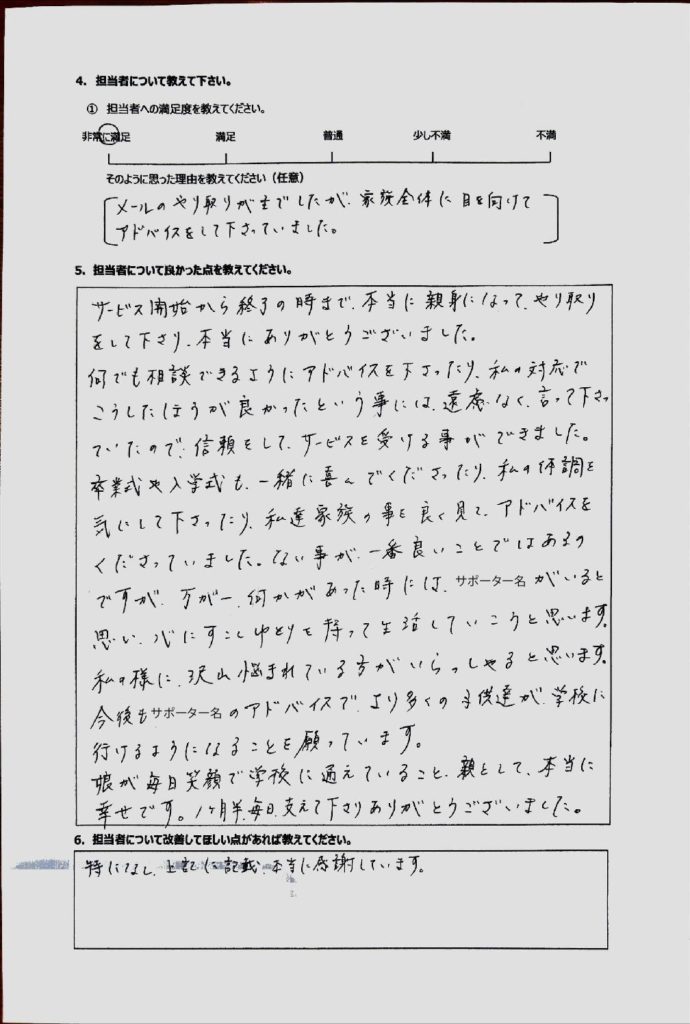 4. 担当者について教えて下さい。
① 担当者への満足度を教えてください。
非常に満足 満足 普通 少し不満 不満
そのように思った理由を教えてください（任意）
メールのやり取りが主でしたが、家族全体に目を向けて
アドバイスをして下さっていました。
5. 担当者について良かった点を教えてください。
サービス開始から終了の時まで、本当に親身になって、やり取り
をして下さり、本当にありがとうございました。
何でも相談できるようにアドバイスを下さったり、私の対応で
こうしたほうが良かったという事には、遠慮なく、言って下さっ
ていたので、信頼をして、サービスを受ける事ができました。
卒業式や入学式も、一緒に喜んでくださったり、私の体調を
気にして下さったり、私達家族の事を良く見て、アドバイスを
くださっていました。ない事が、一番良いことではあるの
ですが、万が一、何かがあった時には、サポーター名がいると
思い、心にすこしゆとりを持って生活していこうと思います。
私の様に、沢山悩まれている方がいらっしゃると思います。
今後もサポーター名のアドバイスで、より多くの子供達が、学校に
行けるようになることを願っています。
娘が毎日笑顔で学校に通えていること、親として、本当に
幸せです。1ヶ月半、毎日、支えて下さりありがとうございました。
6. 担当者について改善してほしい点があれば教えてください。
特になし、上記に記載、本当に感謝しています。